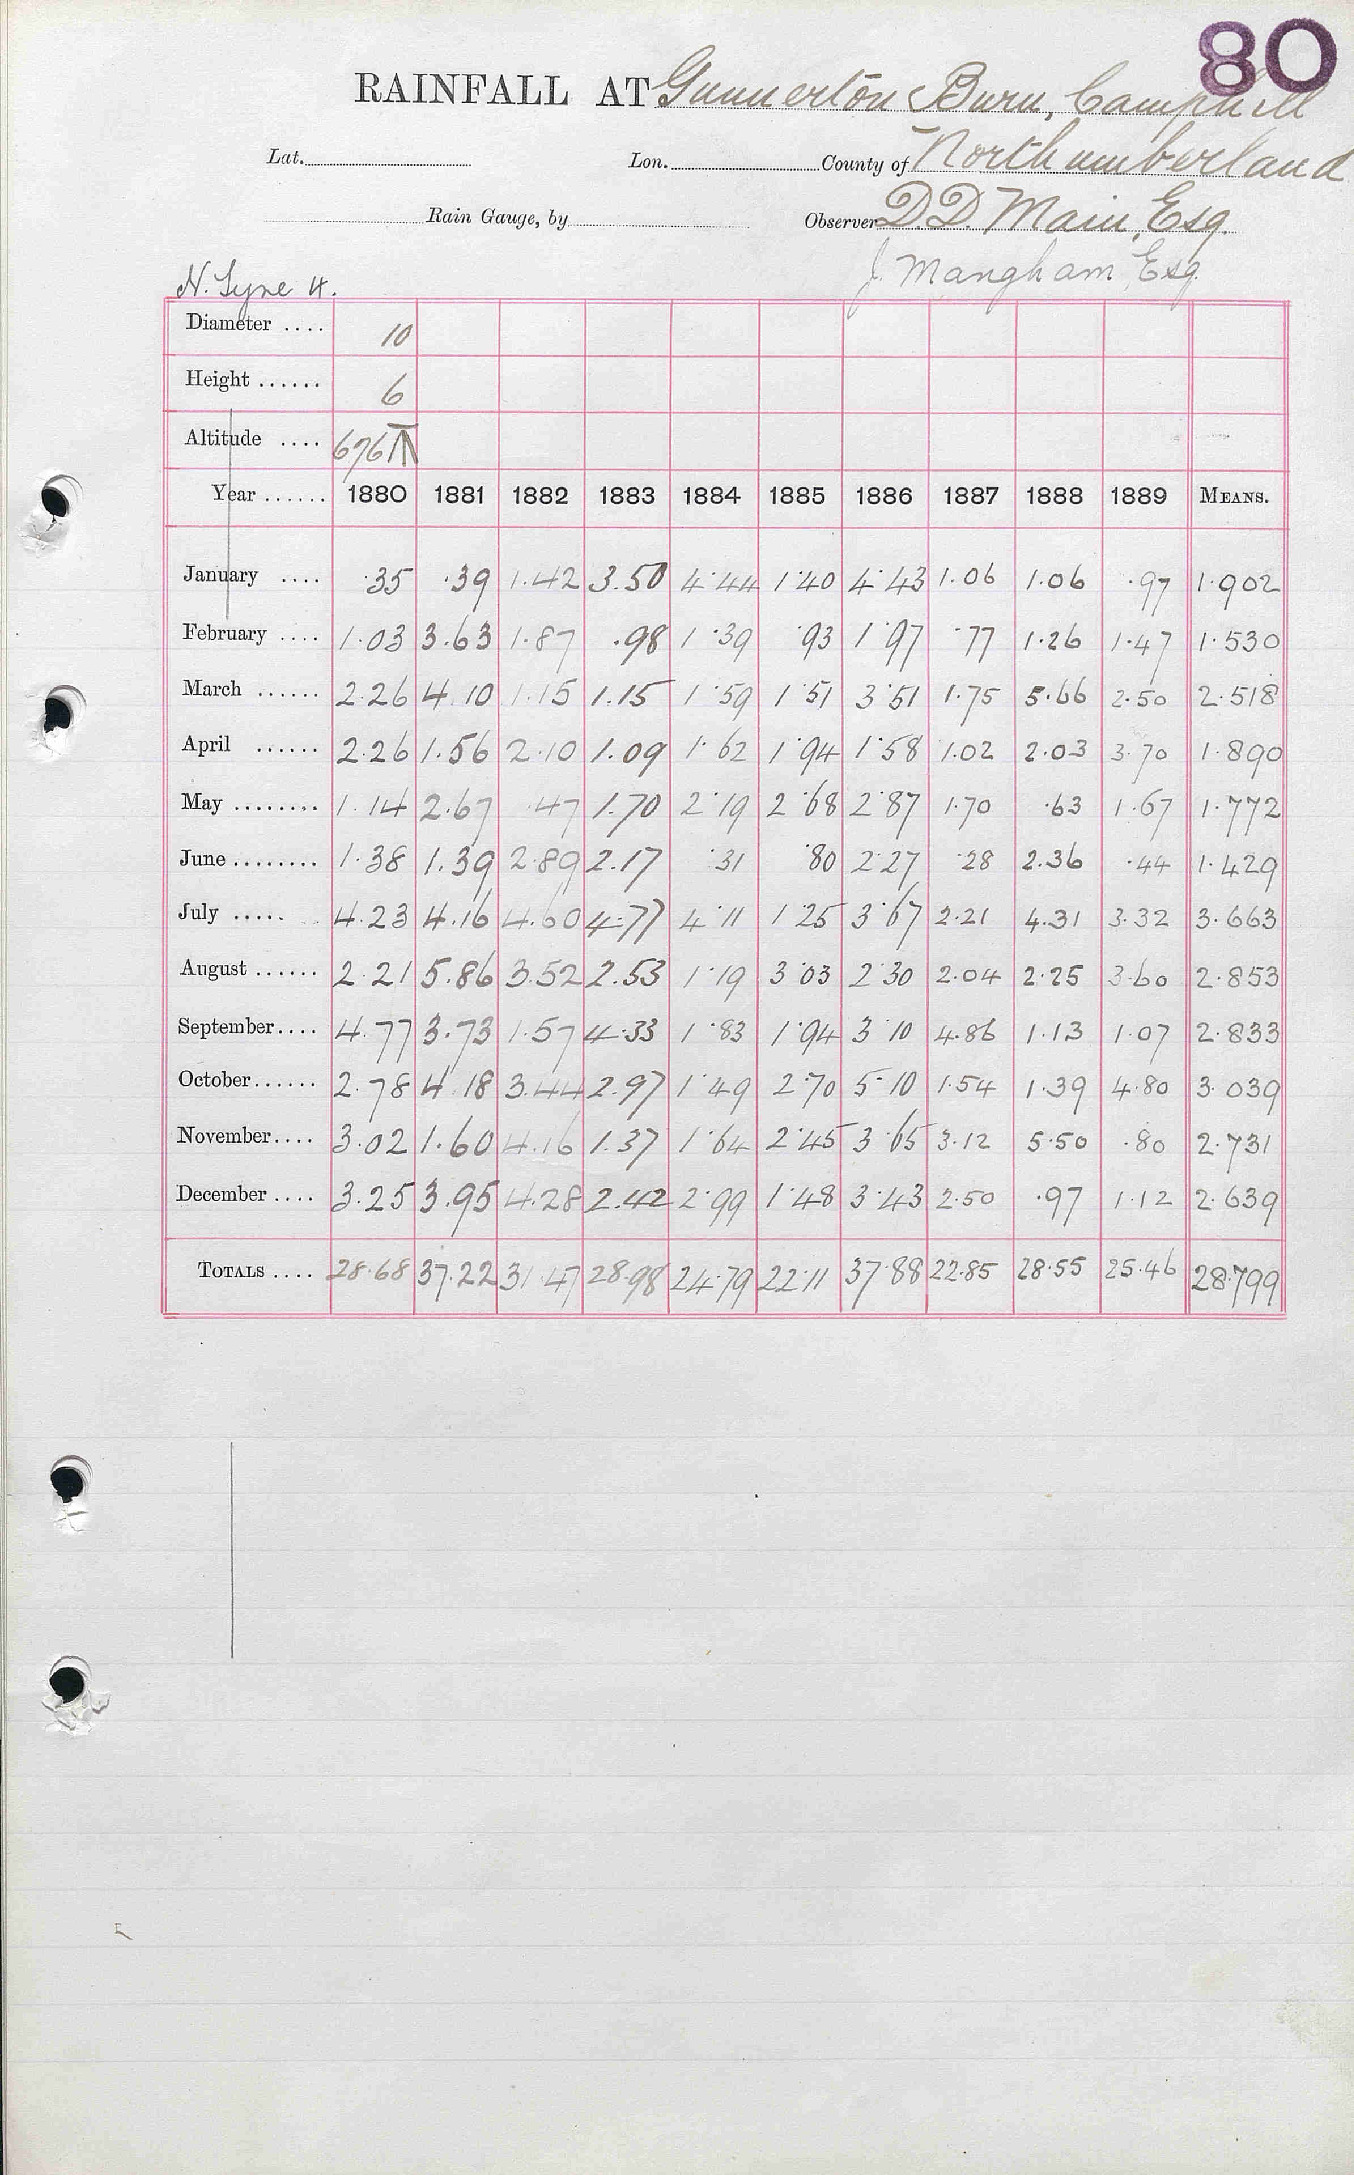 80
RAINFALL AT Gunnerton Burn, Camphill
Lat. Lon. County of Northumberland
Rain Gauge, by Observer D.D. Main, Esq.
J. Mangham Esq.
N. Tyne 4.
Diameter .... 10
Height ...... 6
Altitude .... 676 T
Year ...... 1880 1881 1882 1883 1884 1885 1886 1887 1888 1889 MEANS.
January .... ·35 ·39 1·42 3.50 4·44 1·40 4·43 1·06 1·06 ·97 1·902
February .... 1·03 3·63 1·87 ·98 1·39 ·93 1·97 ·77 1·26 1·47 1·530
March ...... 2·26 4·10 1·15 1.15 1·59 1·51 3·51 1·75 5·66 2·50 2·518
April ...... 2·26 1·56 2·10 1.09 1·62 1·94 1·58 1·02 2·03 3·70 1·890
May ........ 1·14 2·67 ·47 1.70 2·19 2·68 2·87 1·70 ·63 1·67 1·772
June ........ 1·38 1·39 2·89 2.17 ·31 ·80 2·27 ·28 2·36 ·44 1·429
July ..... 4·23 4·16 4·60 4·77 4·11 1·25 3·67 2·21 4·31 3·32 3·663
August ...... 2·21 5·86 3·52 2.53 1·19 3·03 2·30 2·04 2·25 3·60 2·853
September.... 4·77 3·73 1·57 4·33 1·83 1·94 3·10 4·86 1·13 1·07 2·833
October...... 2·78 4·18 3·44 2.97 1·49 2·70 5·10 1·54 1·39 4·80 3·039
November.... 3·02 1·60 4·16 1.37 1·64 2·45 3·65 3·12 5·50 ·80 2·731
December .... 3·25 3·95 4·28 2.42 2·99 1·48 3·43 2·50 ·97 1·12 2·639
TOTALS .... 28·68 37·22 31·47 28·98 24·79 22·11 37·88 22·85 28·55 25·46 28·799